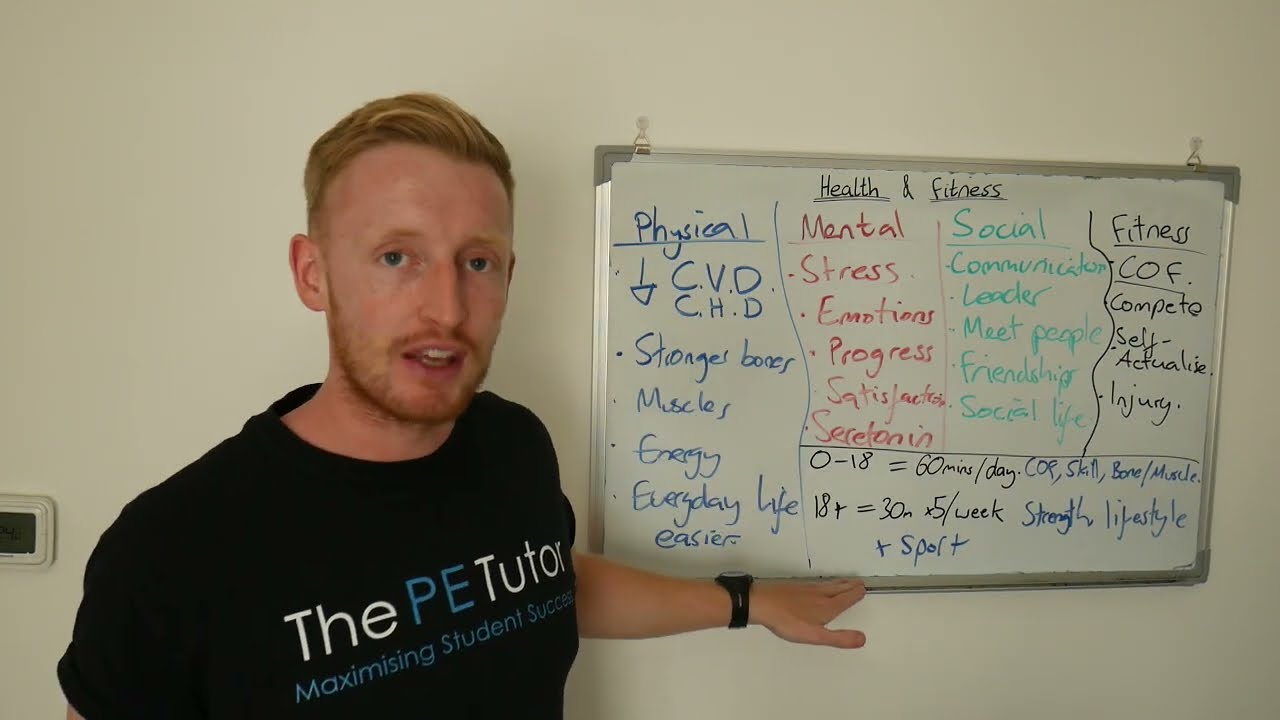 Health & Fitness
Physical
↓ C.V.D.
C.H.D
• Stronger bones
• Muscles
• Energy
• Everyday life
easier.
Mental
• Stress.
• Emotions
• Progress
• Satisfaction
• Seretonin
Social
• Communication
• Leader
• Meet people
• Friendship
• Social life
Fitness
• COF.
Compete
• Self-
Actualise.
• Injury.
0-18 = 60mins/day. COF, Skill, Bone/Muscle.
18+ = 30m x5/week Strength, lifestyle
+ Sport
The PE Tutor
Maximising Student Success